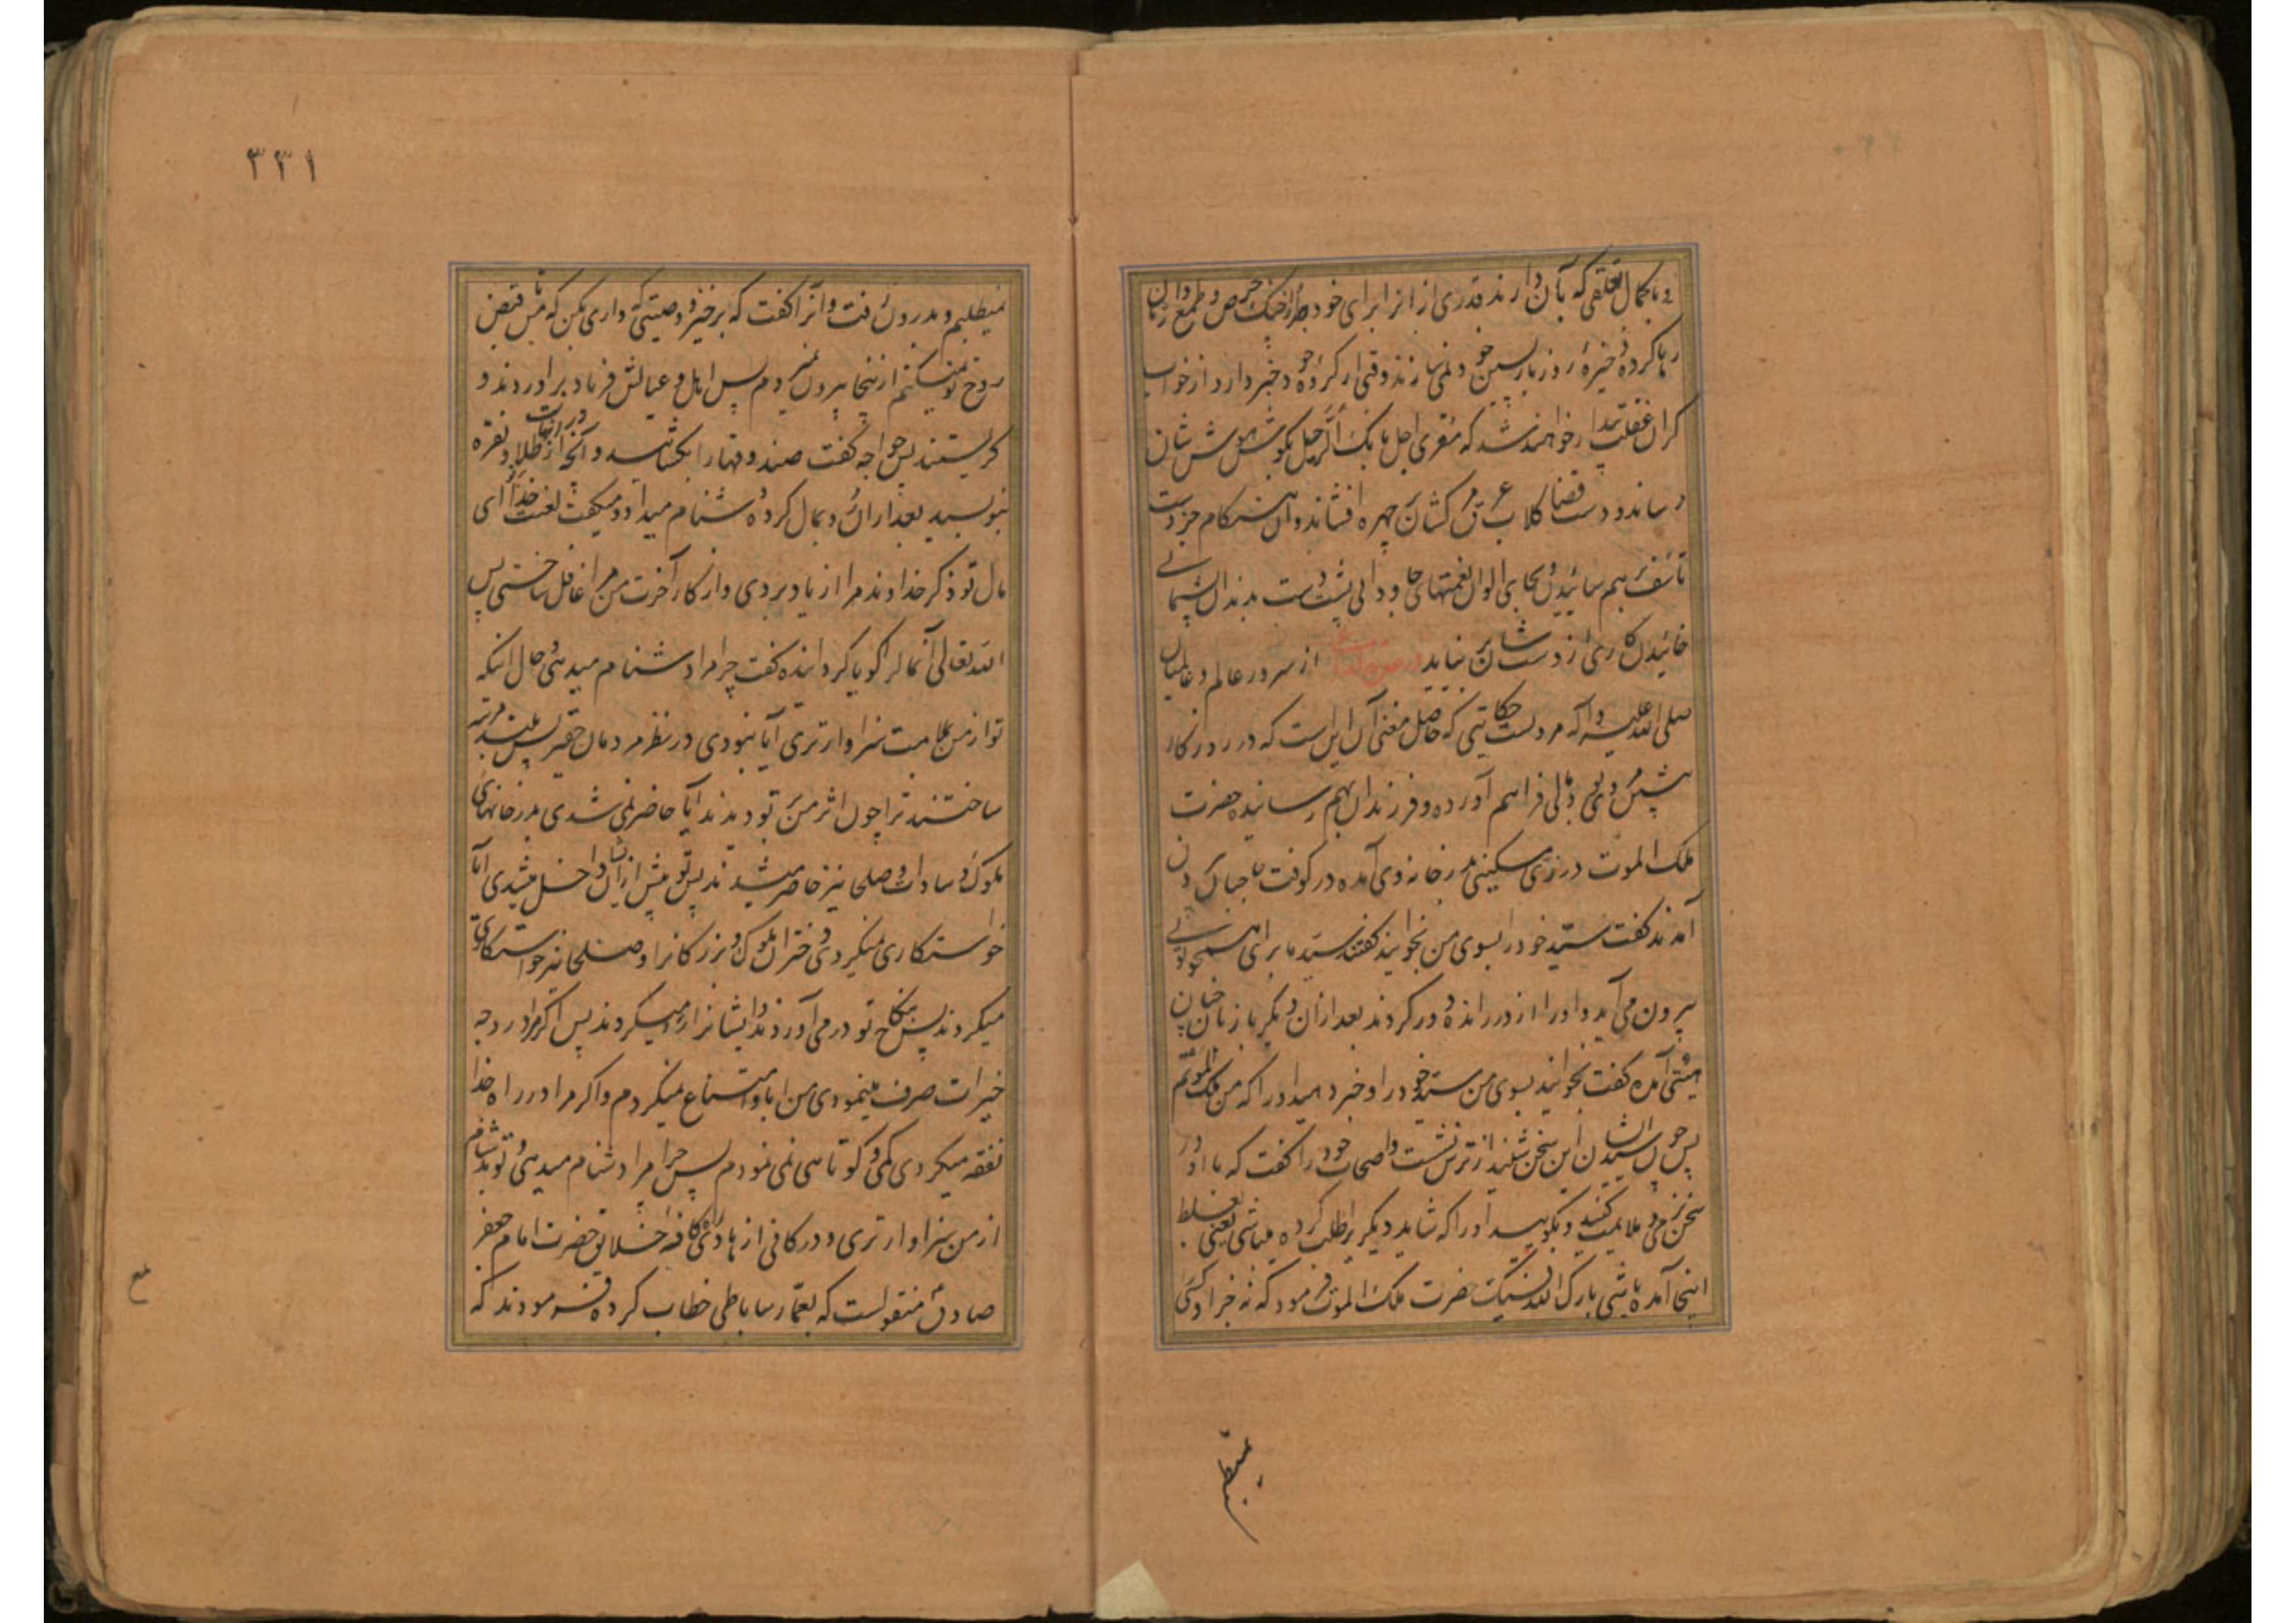 و با کمال تعلقی که بآن دارند قدری از انرا برای خود حرص و طمع
رها کرده ذخیرهٔ روز بازپسین خود نمیسازند وقتی از کردهٔ خود خبردار و از خواب
کران غفلت بیدار خواهند شد که مقری اجل بانک الرحیل بکوش هوش شان
رساند و دست قضا کلاب عرق مرک شان بر چهره افشاند و ان هنکام جز دست
تاسف بر هم سائیدن و بجای الوان نعمتهای جاودانی پشت دست بدندان پشیمانی
خائیدن کاری از دست شان بر نیاید از سرور عالم و عالمیان
صلی الله علیه و آله مرویست حکایتی که حاصل معنی آن اینست که در روزکار
پیش مردی بوده مالی فراهم آورده و فرزندان بهم رسانیده حضرت
ملک الموت در زی مسکینی بدر خانه وی آمده در کوفت حاجبان برون
آمدند کفت سید خود را بسوی من بخوانید کفتند سید ما برای همچو توئی
بیرون می آید و او را از در رانده دور کردند بعد ازان دیکر باز بهمان
هیئتی آمده کفت بخوانید بسوی من سید خود را و خبر دهید او را که من ملک الموتم
پس چون سید ایشان این سخن شنید از ترس نشست و اصحاب خود را کفت که با او در
سخن نرمی و ملایمت کنید و بکوئید او را که شاید دیکریرا طلب کرده میباشی یعنی بغلط
اینجا آمده باشی بارک الله فیک حضرت ملک الموت فرمود که نه خبر از کسی
نمیطلبم
۳۳۱
نمیطلبم و بدرون رفت و انرا کفت که برخیز و وصیتی که داری بکن که من قبض
روح تو نمیکنم از ینجا بیرون نمیروم پس اهل و عیالش فریاد بر اوردند و
کریستند پس خواجه کفت صندوقها را بکشائید و آنچه در انهاست از طلا و نقره
بنویسید بعد ازان رو بمال کرده دشنام میداد و میکفت لعنت خدا بر تو ای
مال تو ذکر خداوند مرا از یاد بردی و از کار آخرت من مرا غافل ساختی پس
الله تعالی آنمال را کویا کردانیده کفت چرا مرا دشنام میدهی و حال انکه
تو از من بملامت سزاوارتری آیا نبودی در نظر مردمان حقیر پس بلند مرتبه
ساختند ترا چون اثر من بر تو دیدند ایا حاضر نمی شدی بدر خانهای
ملوک و سادات و صلحا نیز حاضر میشدند پس تو پیش از ایشان داخل میشدی آیا
خواستکاری نمیکردی دختران ملوک و بزرکانرا و صلحا نیز خواستکاری
میکردند پس بنکاح تو در می آوردند و ایشانرا رد میکردند پس اکر مرا در وجه
خیرات صرف مینمودی من ابا و امتناع نمیکردم و اکر مرا در راه خدا
نفقه میکردی کمی و کوتاهی نمی نمودم پس چرا مرا دشنام میدهی و تو بدشنام
از من سزاوارتری و در کافی از هادی کافه خلایق حضرت امام جعفر
صادق منقولست که بعمار ساباطی خطاب کرده فرمودند که